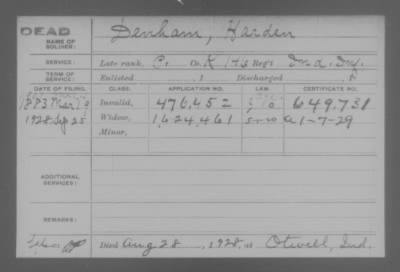 DEAD
NAME OF SOLDIER: Denham, Harden
SERVICE: Late rank, Co. K, 146 Reg't Ind. Inf.
TERM OF SERVICE: Enlisted , 1 Discharged , 1
DATE OF FILING. CLASS. APPLICATION NO. LAW. CERTIFICATE NO.
1883 Mar 19 Invalid, 476,452 649,731
1928 Sep 25 Widow, 1,624,461 5-1-20 A1-7-29
Minor,
ADDITIONAL SERVICES:
REMARKS:
Died Aug 28, 1928, at Otwell, Ind.